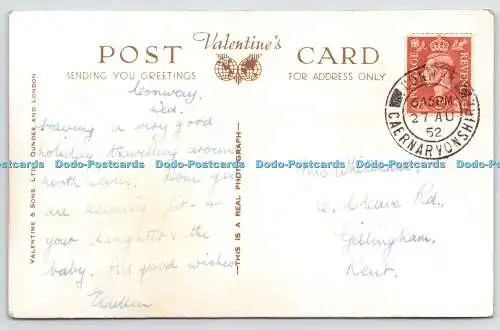 Valentine's
POST CARD
SENDING YOU GREETINGS
FOR ADDRESS ONLY
VALENTINE & SONS, LTD., DUNDEE AND LONDON
THIS IS A REAL PHOTOGRAPH
POSTAGE REVENUE
CONWAY
6.45PM
27 AU
52
CAERNARVONSHIRE
Conway,
Wed.
Having a very good
holiday travelling around
north Wales. Hope you
are keeping fit &
your daughter & the
baby. All good wishes
Mrs
Cleave Rd.,
Gillingham,
Kent.
Dodo-Postcards Dodo-Postcards Dodo-Postcards Dodo-Postcards Dodo-Postcards Dodo-Postcards